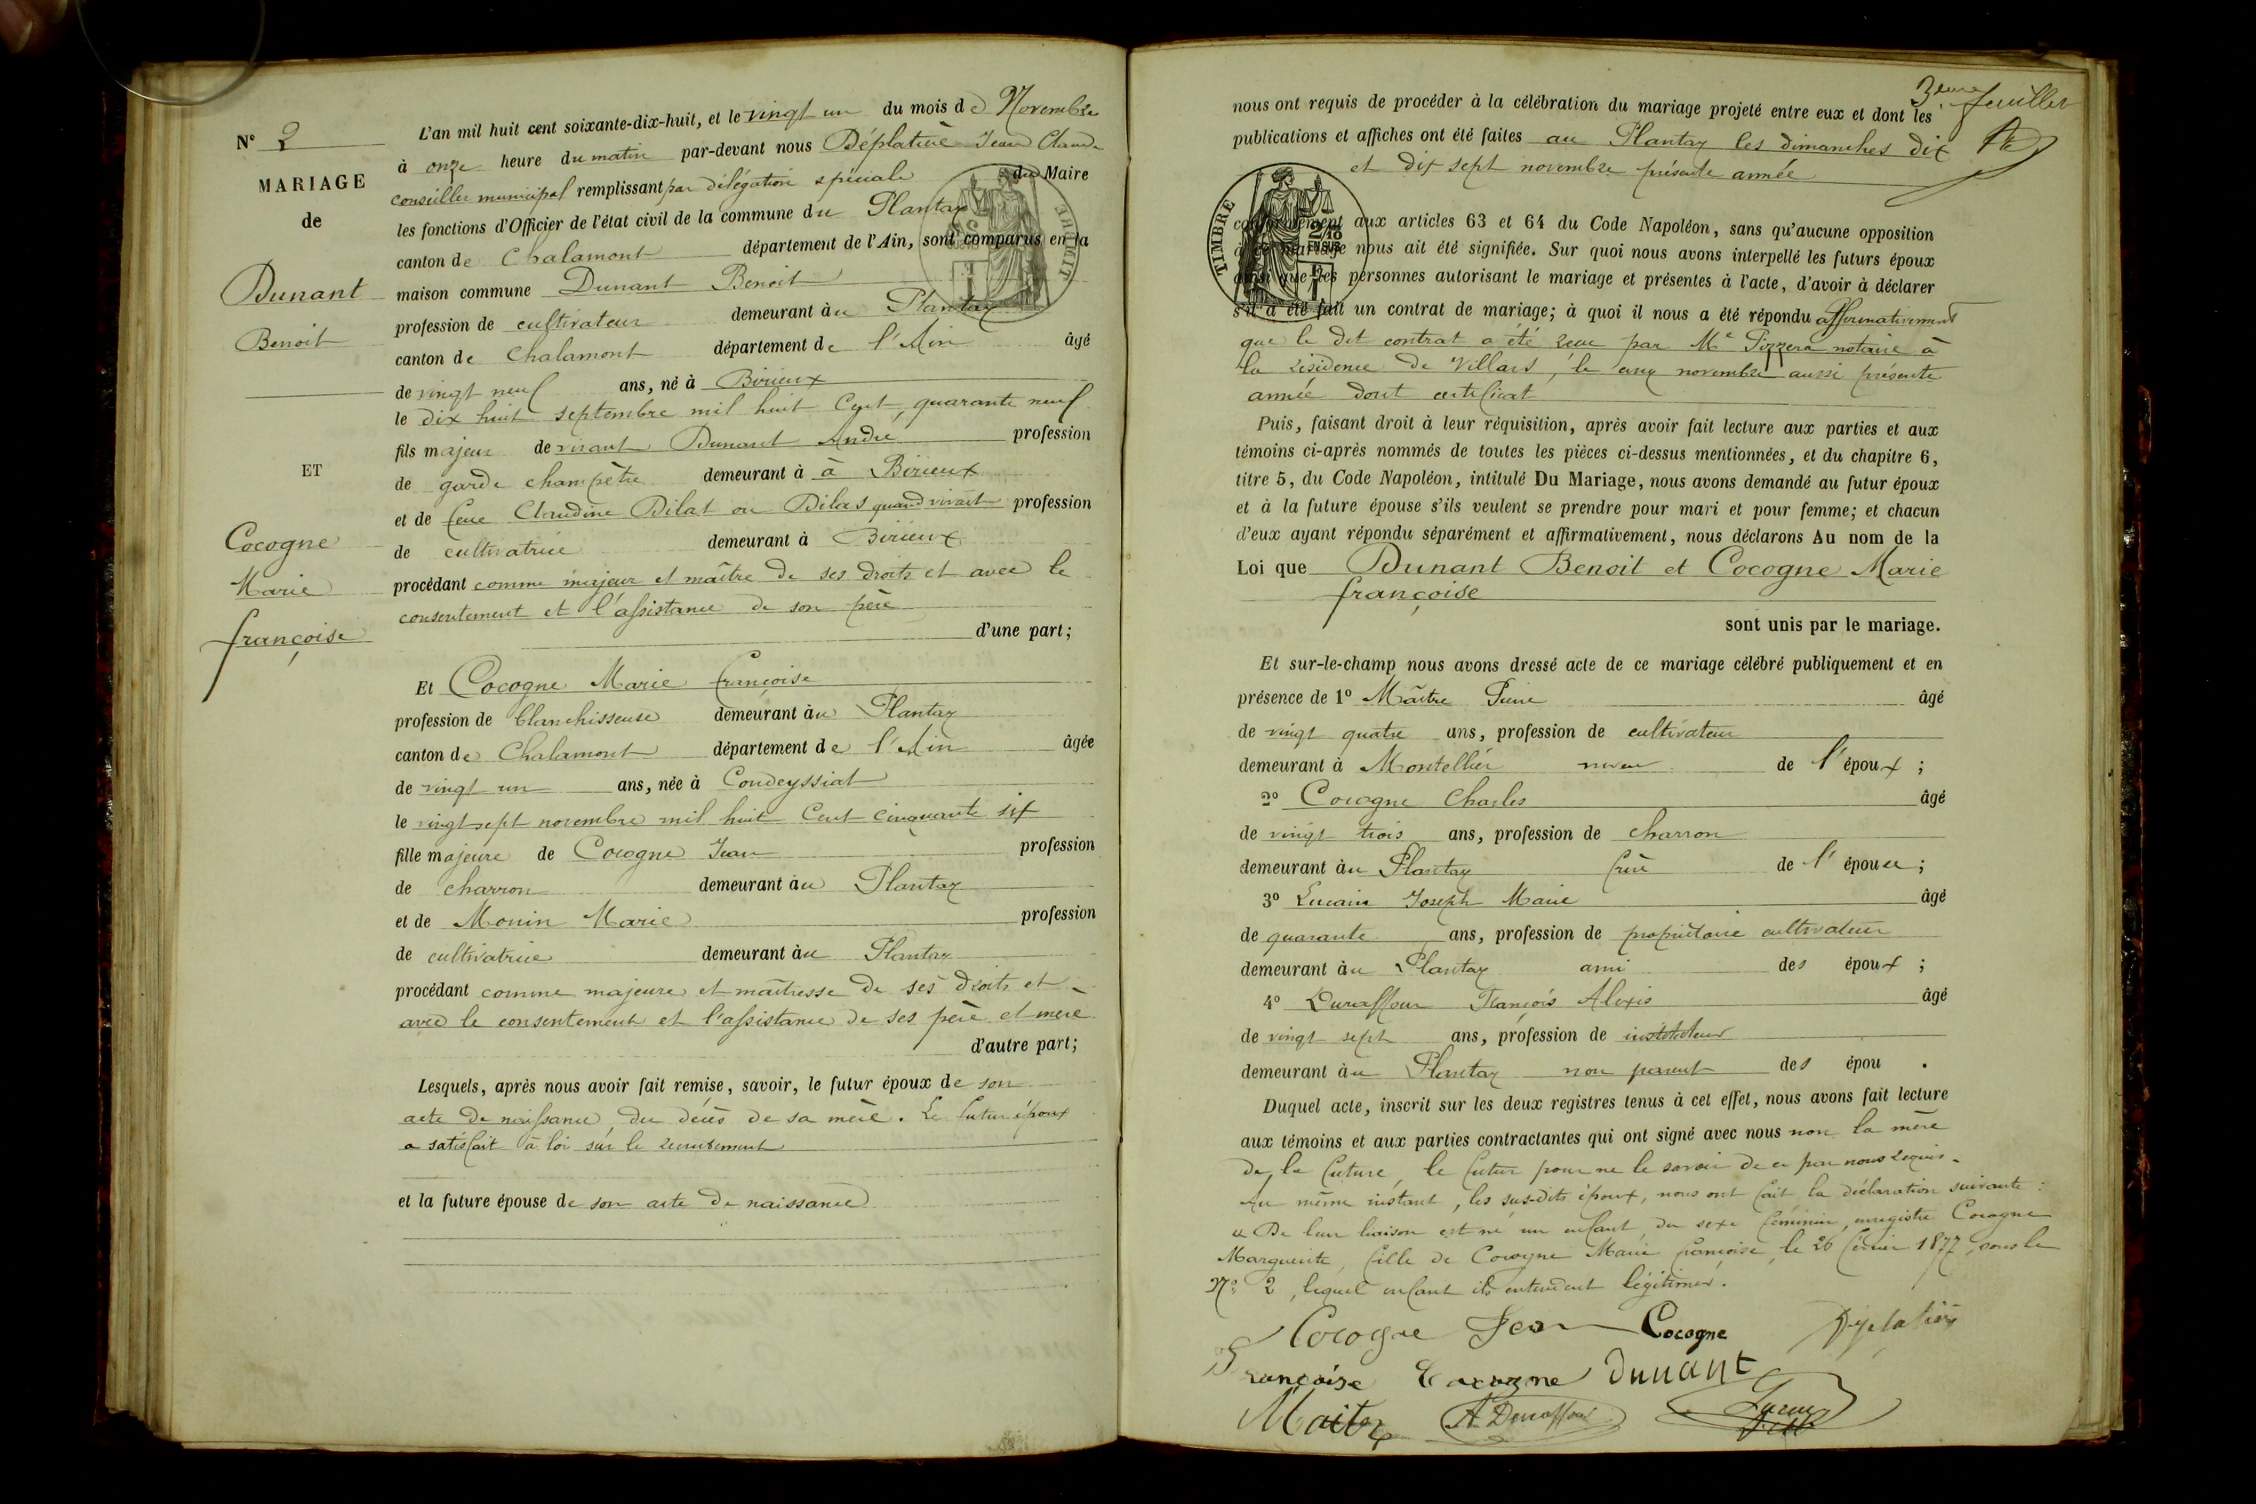 N° 2
MARIAGE
de
Dunant
Benoit
ET
Cocogne
Marie
françoise
L'an mil huit cent soixante-dix-huit, et le vingt un du mois de Novembre
à onze heure du matin par-devant nous Déplatière Jean Claude
conseiller municipal remplissant par délégation spéciale du Maire
les fonctions d'Officier de l'état civil de la commune du Plantay
canton de Chalamont département de l'Ain, sont comparus en la
maison commune Dunant Benoit
profession de cultivateur demeurant au Plantay
canton de Chalamont département de l'Ain âgé
de vingt neuf ans, né à Birieux
le dix huit septembre mil huit Cent quarante neuf
fils majeur de vivant Dunant André profession
de garde champêtre demeurant à à Birieux
et de feue Claudine Bilat ou Bilas quand vivait profession
de cultivatrice demeurant à Birieux
procédant comme majeur et maître de ses droits et avec le
consentement et l'assistance de son père
d'une part;
Et Cocogne Marie françoise
profession de blanchisseuse demeurant au Plantay
canton de Chalamont département de l'Ain âgée
de vingt un ans, née à Condeyssiat
le vingt sept novembre mil huit Cent cinquante six
fille majeure de Cocogne Jean profession
de charron demeurant au Plantay
et de Monin Marie profession
de cultivatrice demeurant au Plantay
procédant comme majeure et maîtresse de ses droits et
avec le consentement et l'assistance de ses père et mère
d'autre part;
Lesquels, après nous avoir fait remise, savoir, le futur époux de son
acte de naissance, du décès de sa mère. Le futur époux
a satisfait à loi sur le recrutement
et la future épouse de son acte de naissance
3eme feuillet
nous ont requis de procéder à la célébration du mariage projeté entre eux et dont les
publications et affiches ont été faites au Plantay les dimanches dix
et dix sept novembre présente année
TIMBRE
conformément aux articles 63 et 64 du Code Napoléon, sans qu'aucune opposition
à ce mariage nous ait été signifiée. Sur quoi nous avons interpellé les futurs époux
ainsi que les personnes autorisant le mariage et présentes à l'acte, d'avoir à déclarer
s'il a été fait un contrat de mariage; à quoi il nous a été répondu affirmativement
que le dit contrat a été reçu par Me Pizzera notaire à
la résidence de Villars, le cinq novembre aussi présente
année dont certificat
Puis, faisant droit à leur réquisition, après avoir fait lecture aux parties et aux
témoins ci-après nommés de toutes les pièces ci-dessus mentionnées, et du chapitre 6,
titre 5, du Code Napoléon, intitulé Du Mariage, nous avons demandé au futur époux
et à la future épouse s'ils veulent se prendre pour mari et pour femme; et chacun
d'eux ayant répondu séparément et affirmativement, nous déclarons Au nom de la
Loi que Dunant Benoit et Cocogne Marie
françoise
sont unis par le mariage.
Et sur-le-champ nous avons dressé acte de ce mariage célébré publiquement et en
présence de 1° Maître Pierre âgé
de vingt quatre ans, profession de cultivateur
demeurant à Montellier neveu de l'époux;
2° Cocogne Charles âgé
de vingt trois ans, profession de charron
demeurant au Plantay frère de l'épouse;
3° Joseph Marie âgé
de quarante ans, profession de propriétaire cultivateur
demeurant au Plantay ami des époux;
4° Duraffour François Alexis âgé
de vingt sept ans, profession de instituteur
demeurant au Plantay non parent des épou .
Duquel acte, inscrit sur les deux registres tenus à cet effet, nous avons fait lecture
aux témoins et aux parties contractantes qui ont signé avec nous non la mère
de la future, le futur pour ne le savoir de ce par nous requis.
Au même instant, les susdits époux, nous ont fait la déclaration suivante:
« De leur liaison est né un enfant du sexe féminin, enregistré Cocogne
Marguerite, fille de Cocogne Marie françoise, le 26 février 1877, sous le
N° 2, lequel enfant ils entendent légitimer.
Cocogne Jean Cocogne
françoise Cocogne Dunant
Maitre A Duraffour